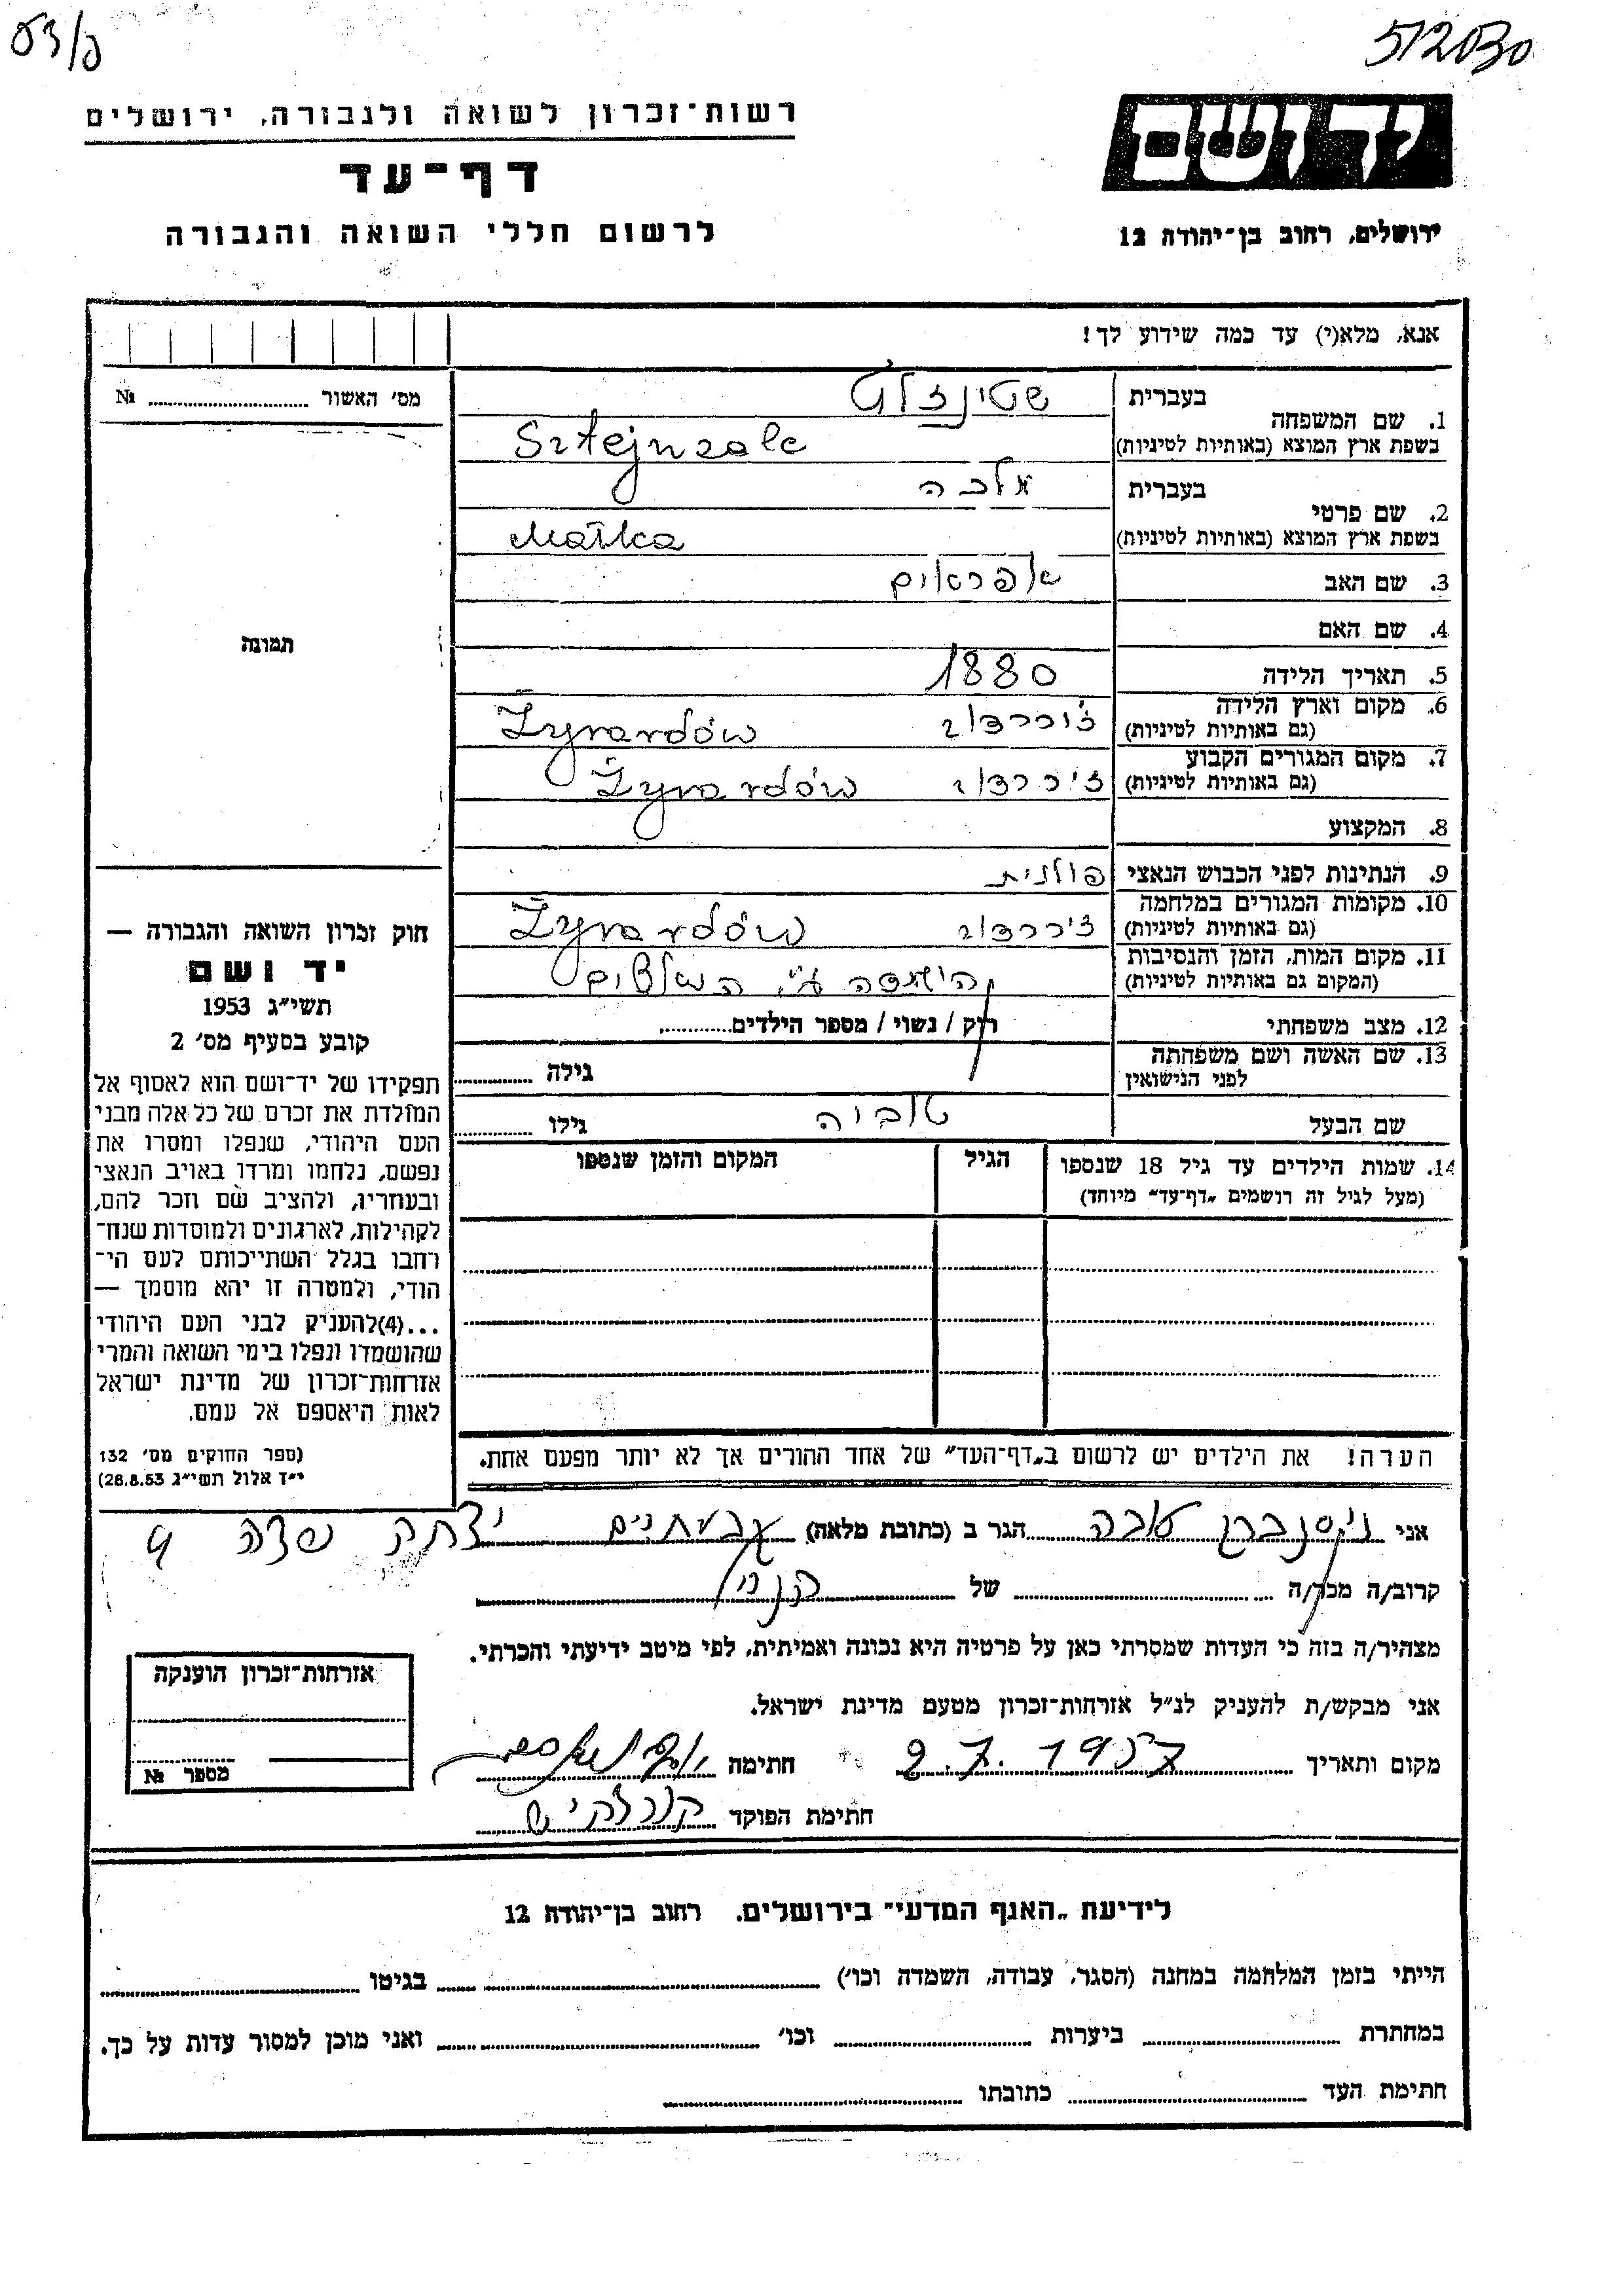 512030
רשות־זכרון לשואה ולגבורה, ירושלים
דף־עד
לרשום חללי השואה והגבורה
יד ושם
ירושלים, רחוב בן־יהודה 12
אנא, מלא(י) עד כמה שידוע לך!
מס׳ האשור ........ №
תמונה
1. שם המשפחה בעברית
בשפת ארץ המוצא (באותיות לטיניות) Sztejnzalc
2. שם פרטי בעברית מלכה
בשפת ארץ המוצא (באותיות לטיניות) Malka
3. שם האב אפראים
4. שם האם
5. תאריך הלידה 1880
6. מקום וארץ הלידה
(גם באותיות לטיניות) Żyrardów
7. מקום המגורים הקבוע
(גם באותיות לטיניות) Żyrardów
8. המקצוע
9. הנתינות לפני הכבוש הנאצי פולנית
10. מקומות המגורים במלחמה
(גם באותיות לטיניות) Żyrardów
11. מקום המות, הזמן והנסיבות
(המקום גם באותיות לטיניות)
12. מצב משפחתי רוק / נשוי / מספר הילדים........
13. שם האשה ושם משפחתה
לפני הנישואין גילה ........
שם הבעל טוביה גילו ........
14. שמות הילדים עד גיל 18 שנספו הגיל המקום והזמן שנספו
(מעל לגיל זה רושמים „דף־עד״ מיוחד)
הערה! את הילדים יש לרשום ב„דף־העד״ של אחד ההורים אך לא יותר מפעם אחת.
חוק זכרון השואה והגבורה —
יד ושם
תשי״ג 1953
קובע בסעיף מס׳ 2
תפקידו של יד־ושם הוא לאסוף אל
המולדת את זכרם של כל אלה מבני
העם היהודי, שנפלו ומסרו את
נפשם, נלחמו ומרדו באויב הנאצי
ובעוזריו, ולהציב שם וזכר להם,
לקהילות, לארגונים ולמוסדות שנח־
רחבו בגלל השתייכותם לעם הי־
הודי, ולמטרה זו יהא מוסמך —
...(4)להעניק לבני העם היהודי
שהושמדו ונפלו בימי השואה והמרי
אזרחות־זכרון של מדינת ישראל
לאות היאספם אל עמם.
(ספר החוקים מס׳ 132
י״ד אלול תשי״ג 28.8.53)
אני טובה הגר ב (כתובת מלאה) גבעתיים יצחק שדה
קרוב/ה מכר/ה ........ של
מצהיר/ה בזה כי העדות שמסרתי כאן על פרטיה היא נכונה ואמיתית, לפי מיטב ידיעתי והכרתי.
אני מבקש/ת להעניק לנ״ל אזרחות־זכרון מטעם מדינת ישראל.
מקום ותאריך 2.7.1957 חתימה
חתימת הפוקד
אזרחות־זכרון הוענקה
מספר №
לידיעת „האגף המדעי״ בירושלים, רחוב בן־יהודה 12
הייתי בזמן המלחמה במחנה (הסגר, עבודה, השמדה וכו׳) ........ בגיטו ........
במחתרת ........ ביערות ........ וכו׳ ........ ואני מוכן למסור עדות על כך.
חתימת העד ........ כתובתו ........